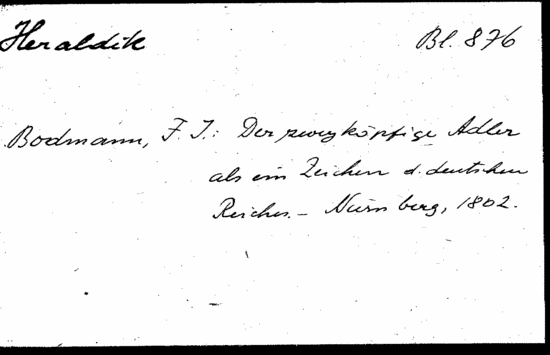 Heraldik
Bl. 876
Bodmann, F. J.: Der zweyköpfige Adler
als ein Zeichen d. deutschen
Reiches. - Nürnberg, 1802.